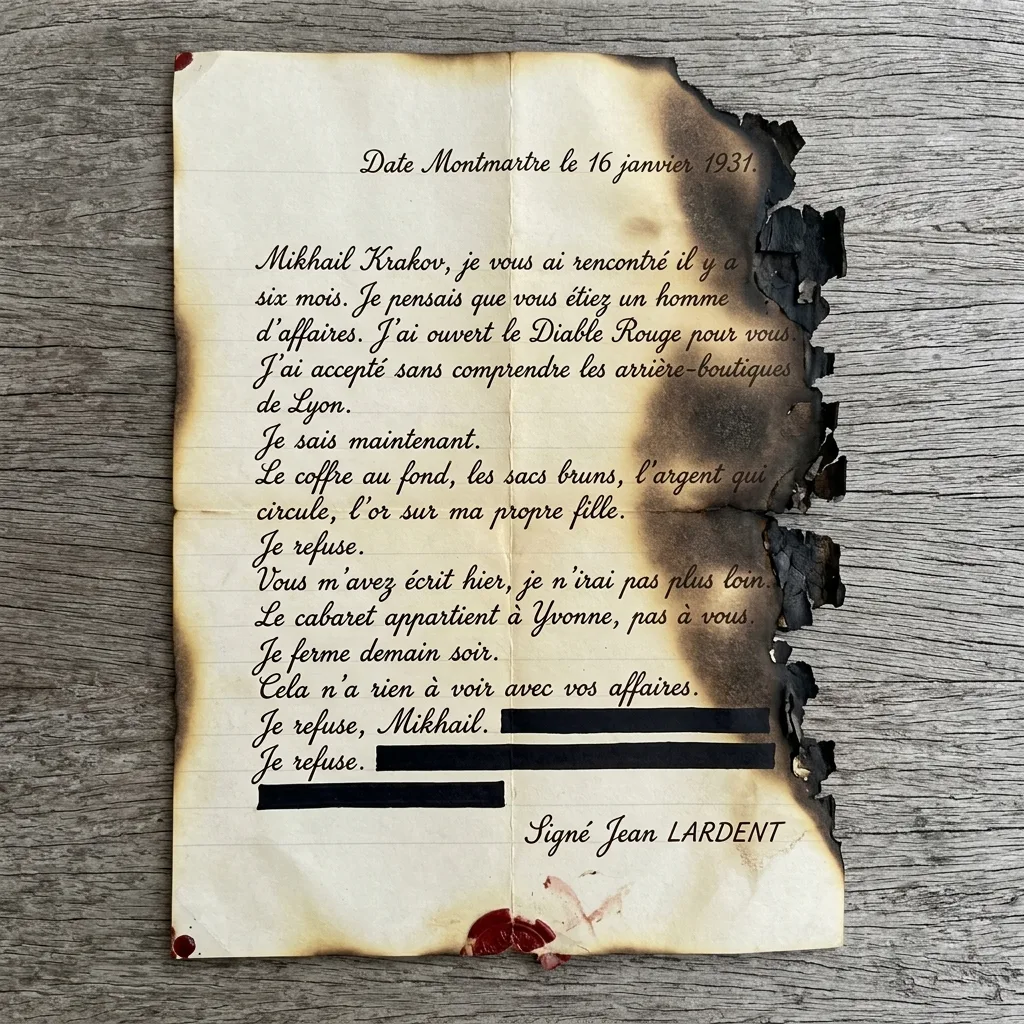 Date Montmartre le 16 janvier 1931.
Mikhail Krakov, je vous ai rencontré il y a
six mois. Je pensais que vous étiez un homme
d'affaires. J'ai ouvert le Diable Rouge pour vous.
J'ai accepté sans comprendre les arrière-boutiques
de Lyon.
Je sais maintenant.
Le coffre au fond, les sacs bruns, l'argent qui
circule, l'or sur ma propre fille.
Je refuse.
Vous m'avez écrit hier, je n'irai pas plus loin.
Le cabaret appartient à Yvonne, pas à vous.
Je ferme demain soir.
Cela n'a rien à voir avec vos affaires.
Je refuse, Mikhail.
Je refuse.
Signé Jean LARDENT